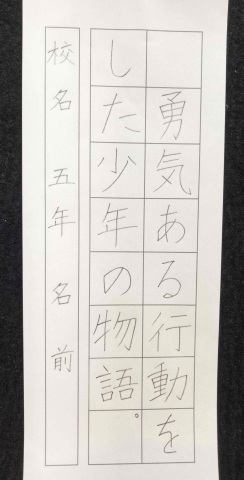 勇気ある行動を
した少年の物語。
校名 五年 名前